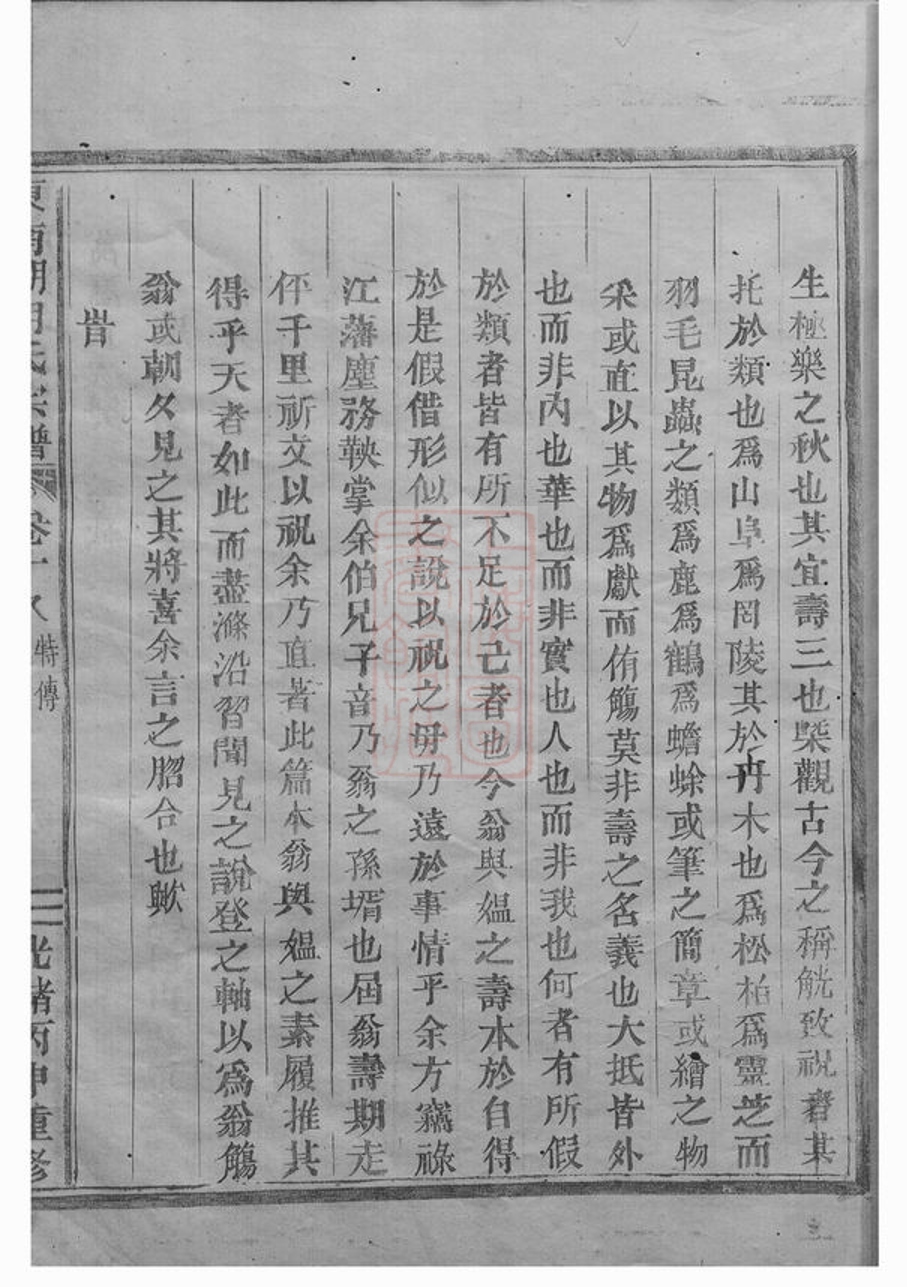 生極樂之秋也其宜壽三也槩觀古今之稱觥致祝者某
托於類也爲山阜爲罔陵其於冄木也爲松柏爲靈芝而
羽毛昆蟲之類爲鹿爲鶴爲蟾蜍或筆之簡章或繪之物
采或直以其物爲獻而侑觴莫非壽之名義也大抵皆外
也而非內也華也而非實也人也而非我也何者有所假
於類者皆有所不足於己者也今翁與媼之壽本於自得
於是假借形似之說以祝之毋乃遠於事情乎余方竊祿
江藩塵務鞅掌余伯兄子音乃翁之孫壻也屆翁壽期走
伻千里祈文以祝余乃直著此篇本翁與媼之素履推其
得乎天者如此而盡滌沿習聞見之說登之軸以爲翁觴
翁或朝夕見之其將喜余言之膶合也歟
旹
宗譜 卷十八 特傳 二 光緒丙申重修